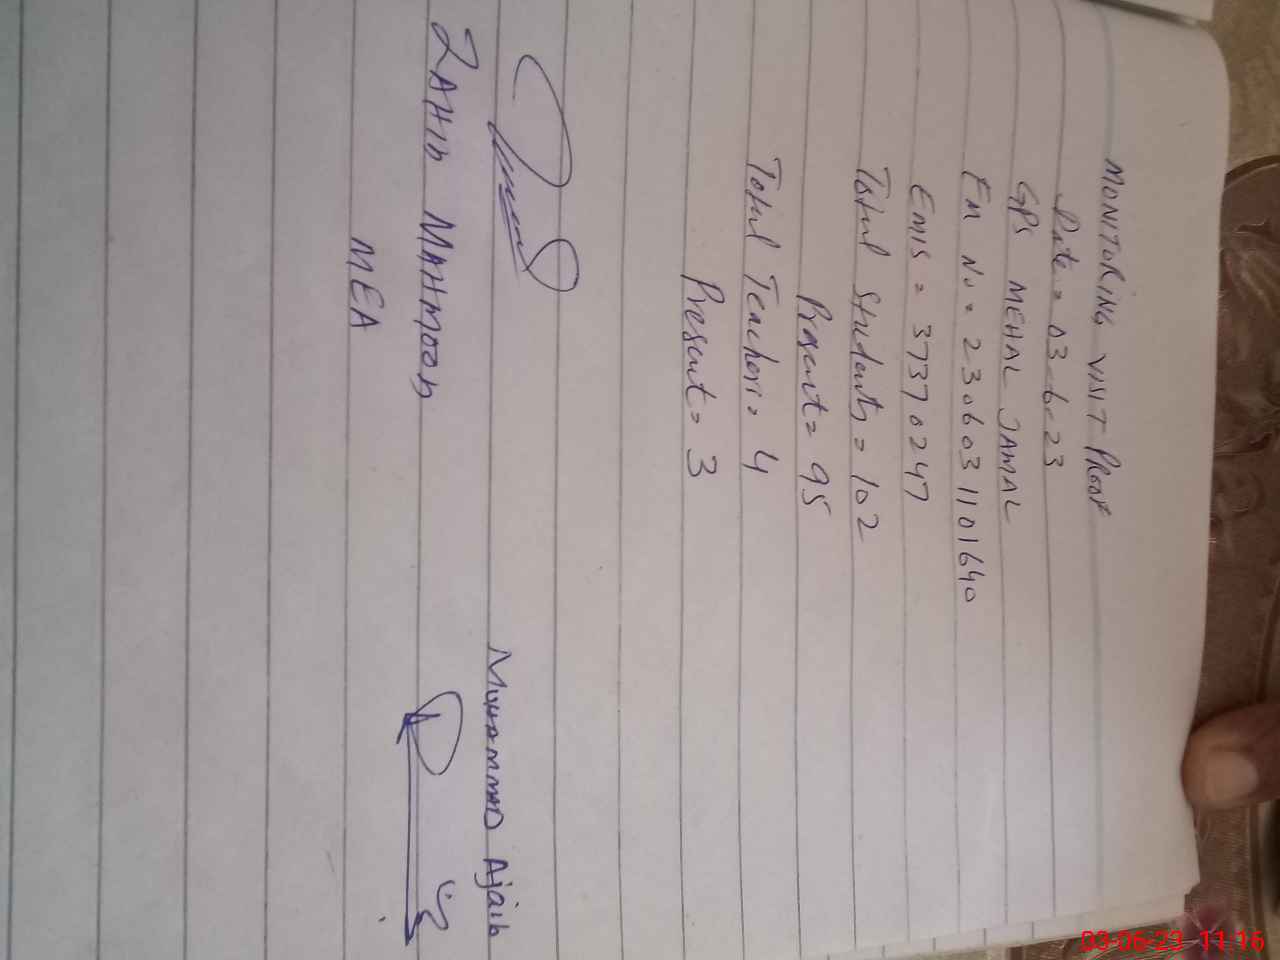 MONITORING VISIT PROOF
Date = 03-6-23
GPS MEHAL JAMAL
FM No = 2306031101640
EMIS = 37370247
Total Students = 102
Present = 95
Total Teachers = 4
Present = 3
MUHAMMAD Ajaib
ZAHID MAHMOOD
MEA
03-06-23 11:16